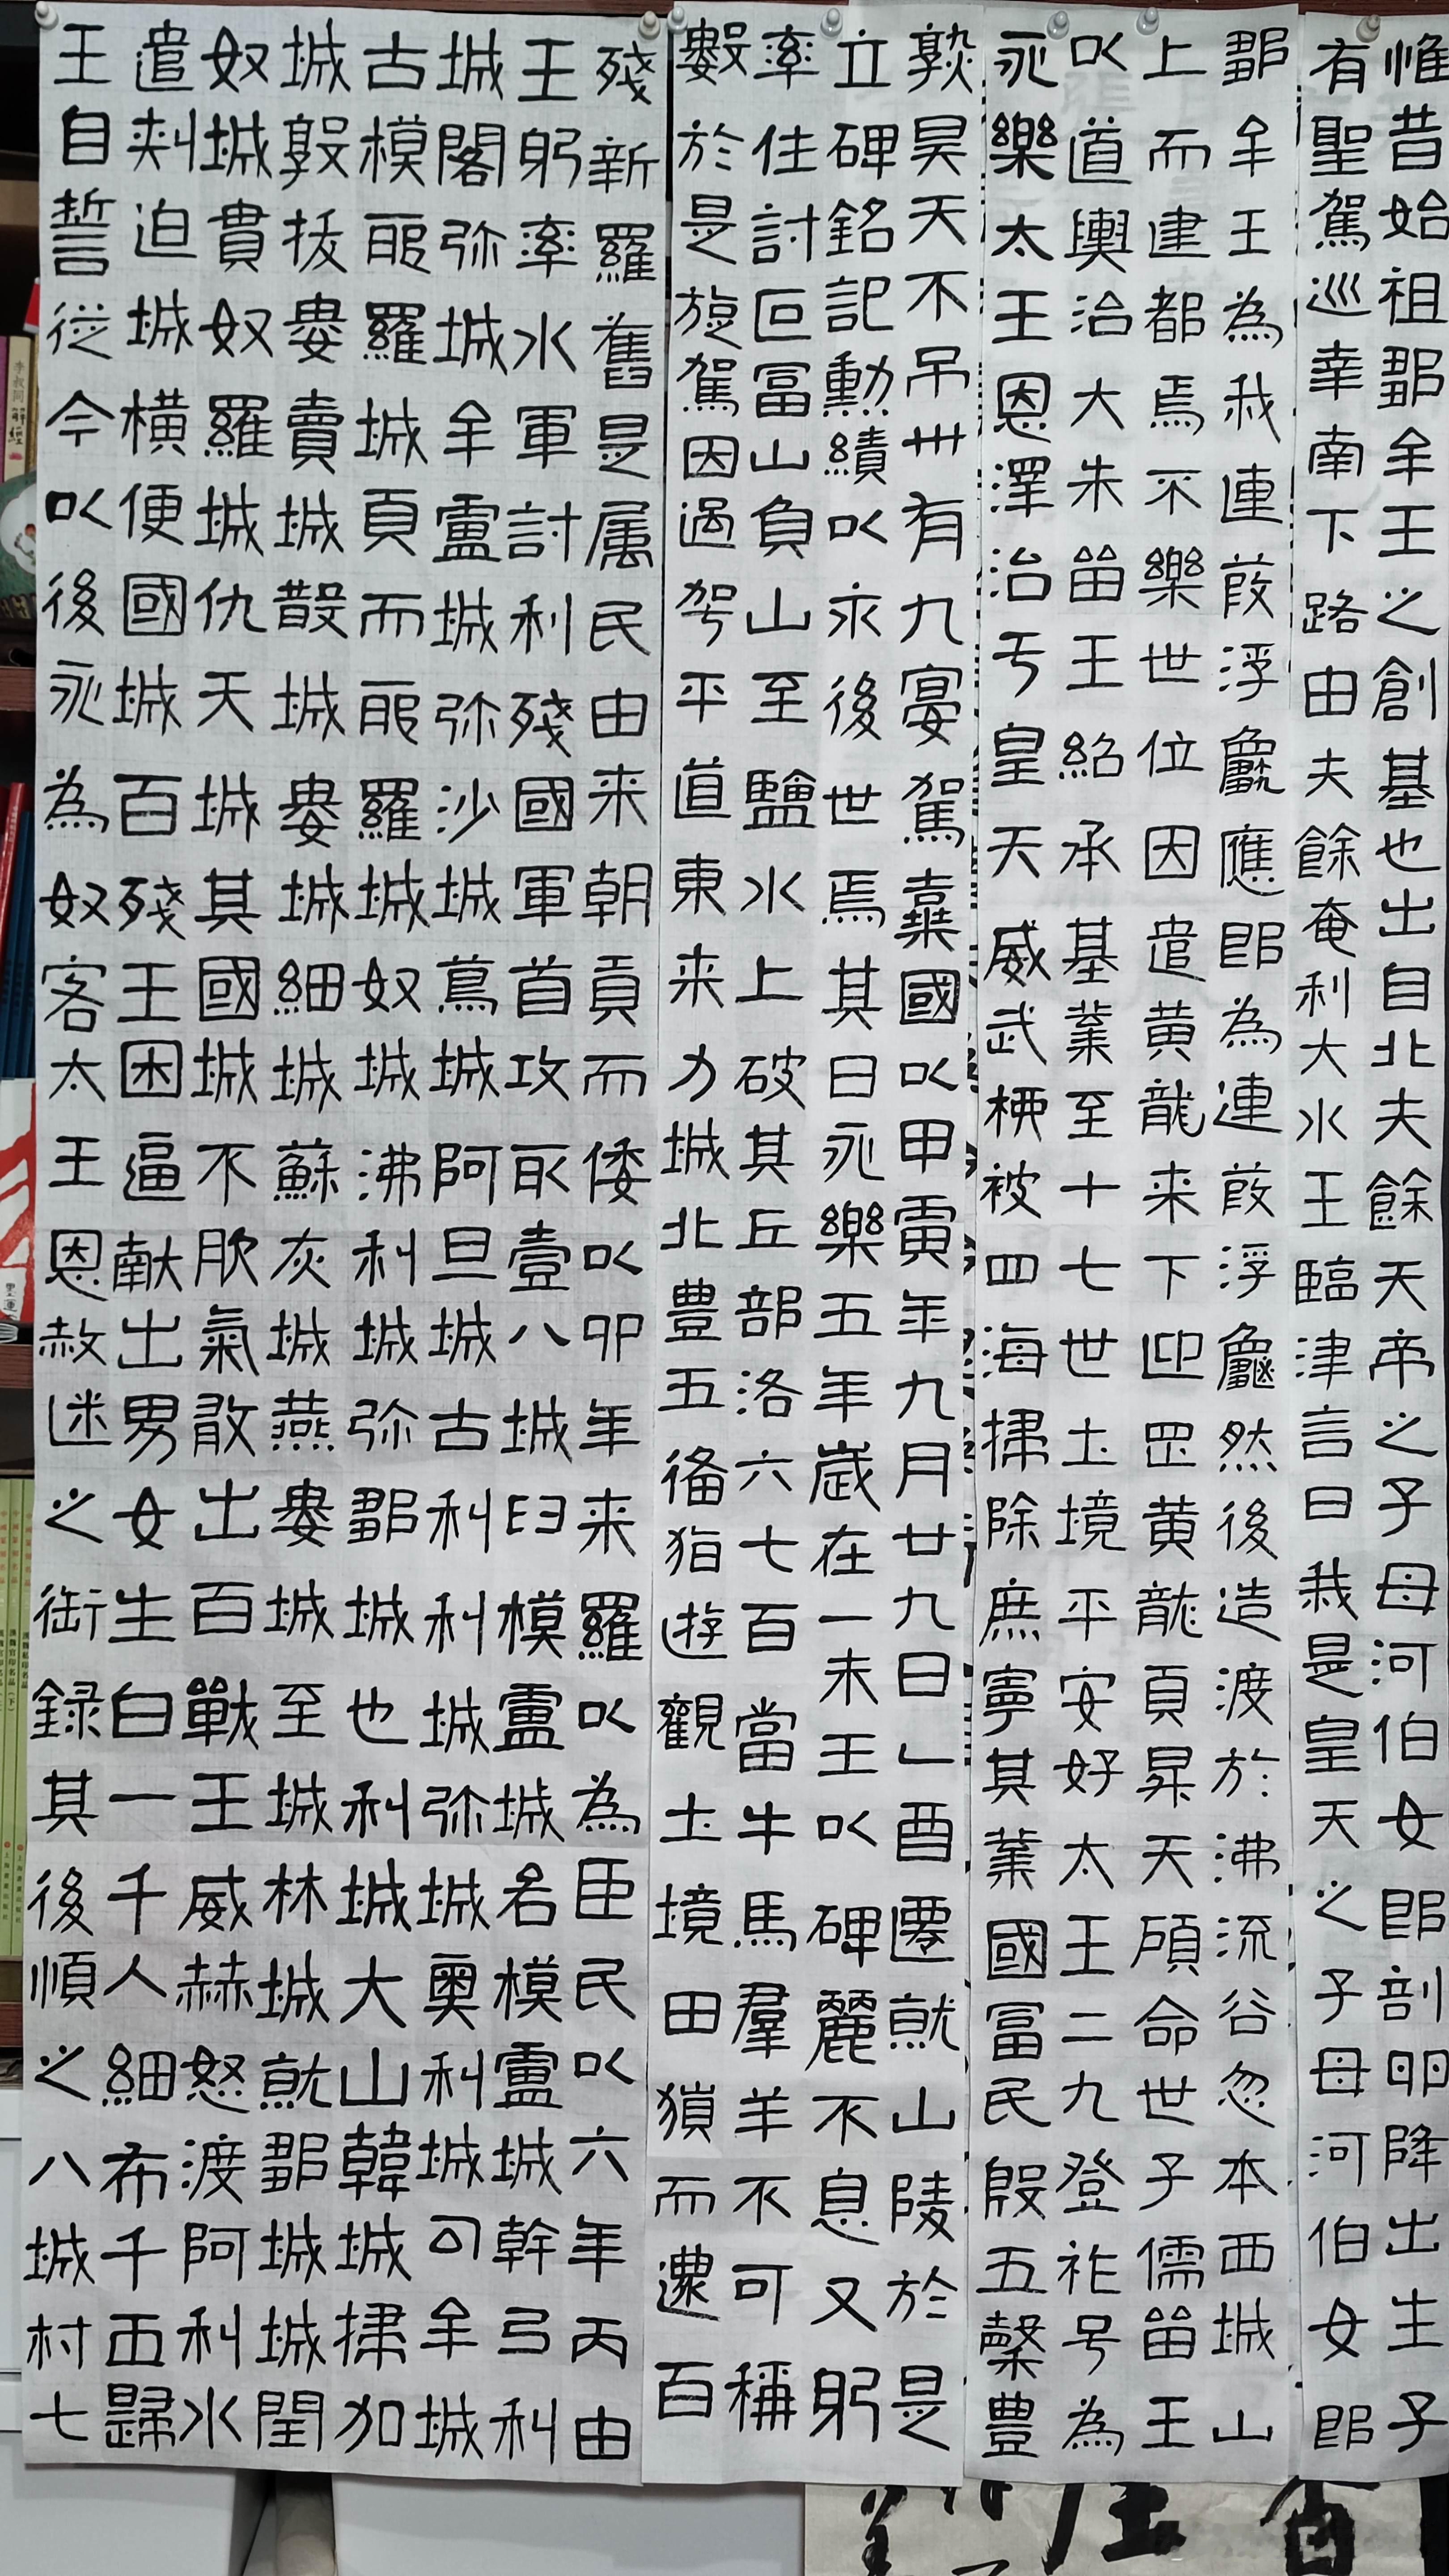 惟昔始祖鄒牟王之創基也出自北夫餘天帝之子母河伯女郎剖卵降出生子
有聖駕巡幸南下路由夫餘奄利大水王臨津言曰我是皇天之子母河伯女郎
鄒牟王為我連葭浮龜應即為連葭浮龜然後造渡於沸流谷忽本西城山
上而建都焉不樂世位因遣黃龍来下迎罡黃龍頁昇天碩命世子儒留王
以道輿治大朱留王紹承基業至十七世土境平安好太王二九登祚号為
永樂太王恩澤洽于皇天威武柳被四海掃除庶寧其業國富民殷五穀豊
熟昊天不弔卅有九宴駕棄國以甲寅年九月廿九日乙酉遷就山陵於是
立碑銘記勳績以永後世焉其曰永樂五年歲在一未王以碑麗不息又躬
率住討叵富山負山至鹽水上破其丘部洛六七百當牛馬羣羊不可稱
數於是旋駕因過駕平道東来力城北豊五備猶遊觀土境田獵而還百
殘新羅舊是属民由来朝貢而倭以卯年来羅以為臣民以六年丙由
王躬率水軍討利殘國軍首攻取壹八城臼模盧城名模盧城幹弓利
城閣弥城牟盧城弥沙城蔦城阿旦城古利利城弥城奥利城勾牟城
古模耶羅城頁而耶羅城奴城沸利城弥鄒城也利城大山韓城掃加
城敦拔婁賣城散城婁城細城蘇灰城燕婁城至城林城就鄒城城閏
奴城貫奴羅城仇天城其國城不服氣敢出百戰王威赫怒渡阿利水
遣刾迫城横便國城百殘王困逼獻出男女生白一千人細布千匹歸
王自誓從今以後永為奴客太王恩赦迷之御録其後順之八城村七